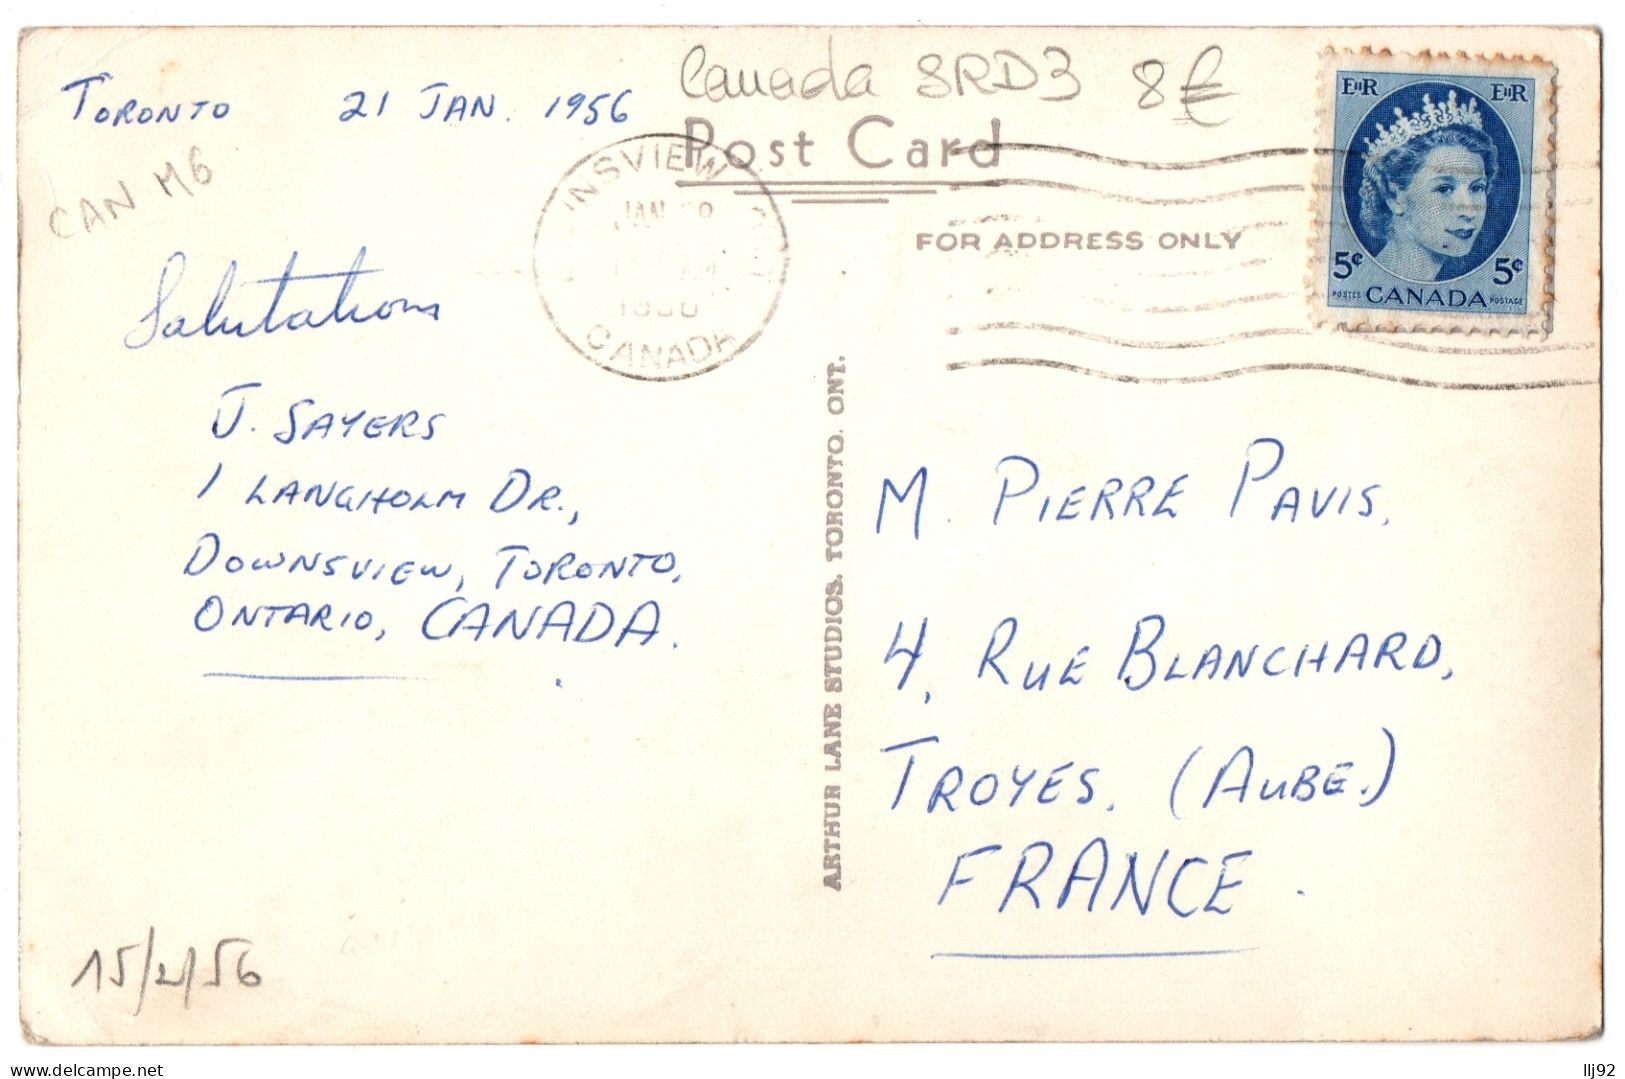 TORONTO 21 JAN. 1956
Canada SRD3 8€
Post Card
CAN M6
FOR ADDRESS ONLY
NSVIEW
JAN
CANADA
EIIR EIIR
5¢ 5¢
POSTES CANADA POSTAGE
Salutations
J. SAYERS
1 LANGHOLM DR.,
DOWNSVIEW, TORONTO,
ONTARIO, CANADA.
ARTHUR LANE STUDIOS. TORONTO. ONT.
M. PIERRE PAVIS,
4, RUE BLANCHARD,
TROYES. (AUBE.)
FRANCE.
15/2/56
llj92